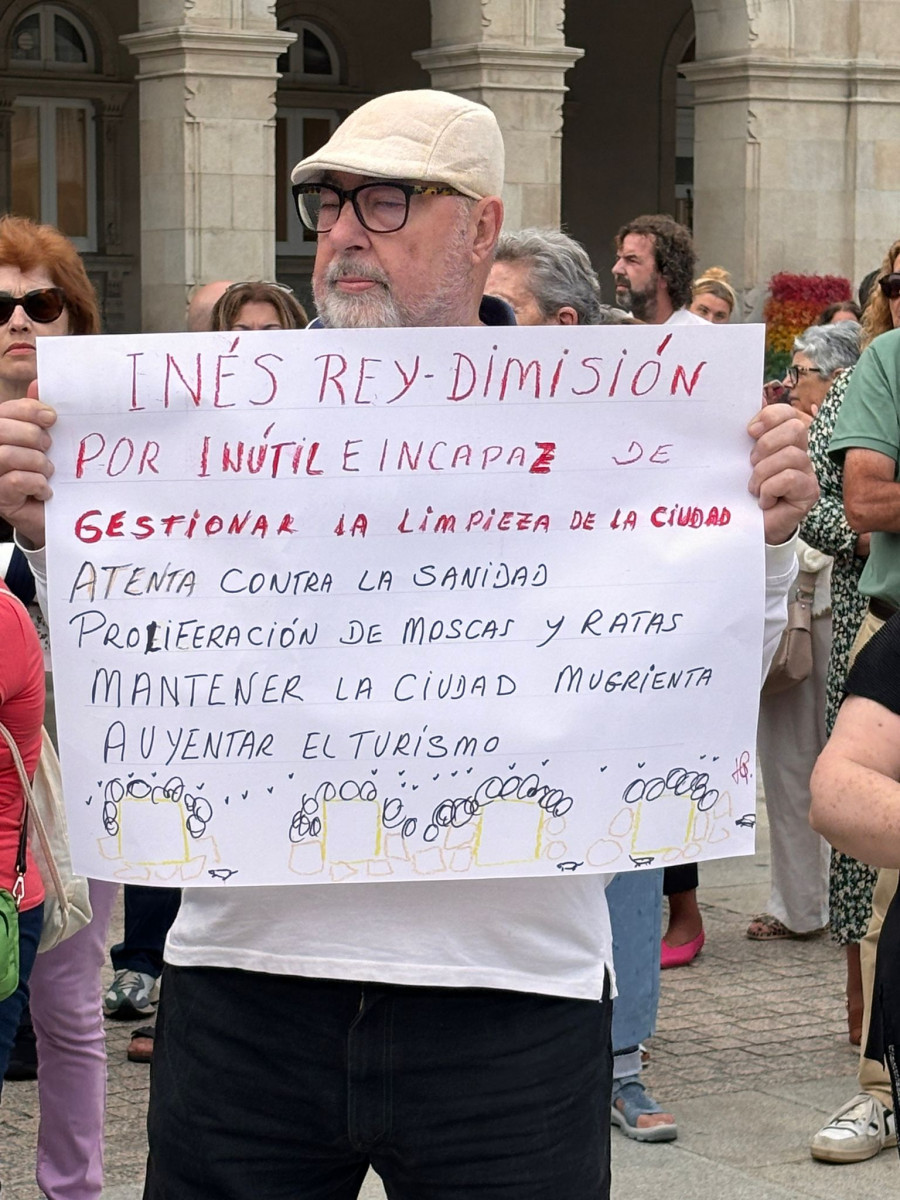 INÉS REY-DIMISIÓN
POR INÚTIL E INCAPAZ DE
GESTIONAR LA LIMPIEZA DE LA CIUDAD
ATENTA CONTRA LA SANIDAD
PROLIFERACIÓN DE MOSCAS Y RATAS
MANTENER LA CIUDAD MUGRIENTA
AUYENTAR EL TURÍSMO